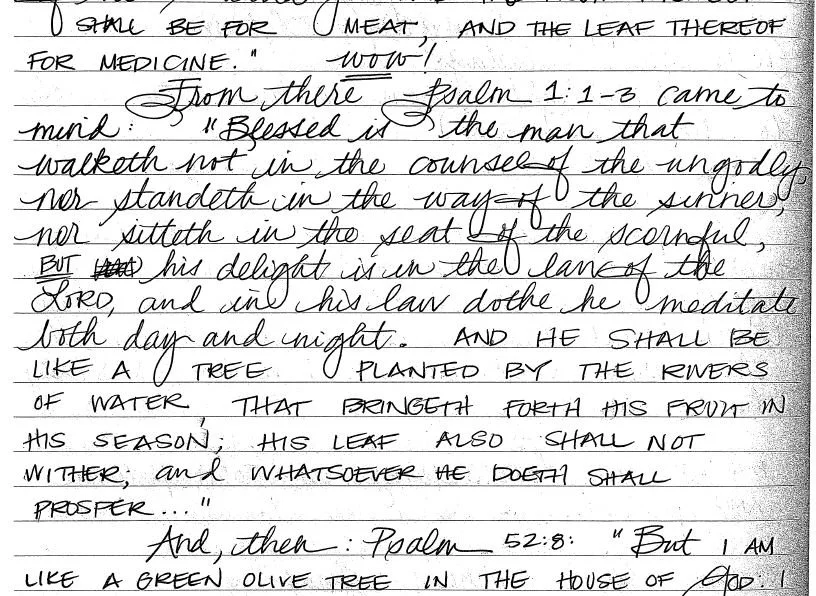 SHALL BE FOR MEAT, AND THE LEAF THEREOF
FOR MEDICINE." wow!
From there Psalm 1:1-3 came to
mind: "Blessed is the man that
walketh not in the counsel of the ungodly,
nor standeth in the way of the sinner,
nor sitteth in the seat of the scornful,
BUT his delight is in the law of the
LORD, and in his law dothe he meditate
both day and night. AND HE SHALL BE
LIKE A TREE PLANTED BY THE RIVERS
OF WATER, THAT BRINGETH FORTH HIS FRUIT IN
HIS SEASON; HIS LEAF ALSO SHALL NOT
WITHER; and WHATSOEVER HE DOETH SHALL
PROSPER..."
And, then: Psalm 52:8: "But I AM
LIKE A GREEN OLIVE TREE IN THE HOUSE OF GOD: I